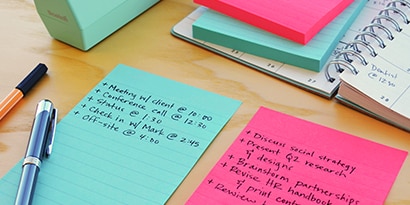 + Meeting w/ client @ 10:00
+ Conference call @ 12:30
+ Status @ 1:30
+ Check in w/ Mark @ 2:45
+ Off-site @ 4:00
+ Discuss social strategy
+ Present Q2 research
& designs
+ Brainstorm partnerships
+ Revise HR handbook
& print
+ Review
Dentist
@ 12:30